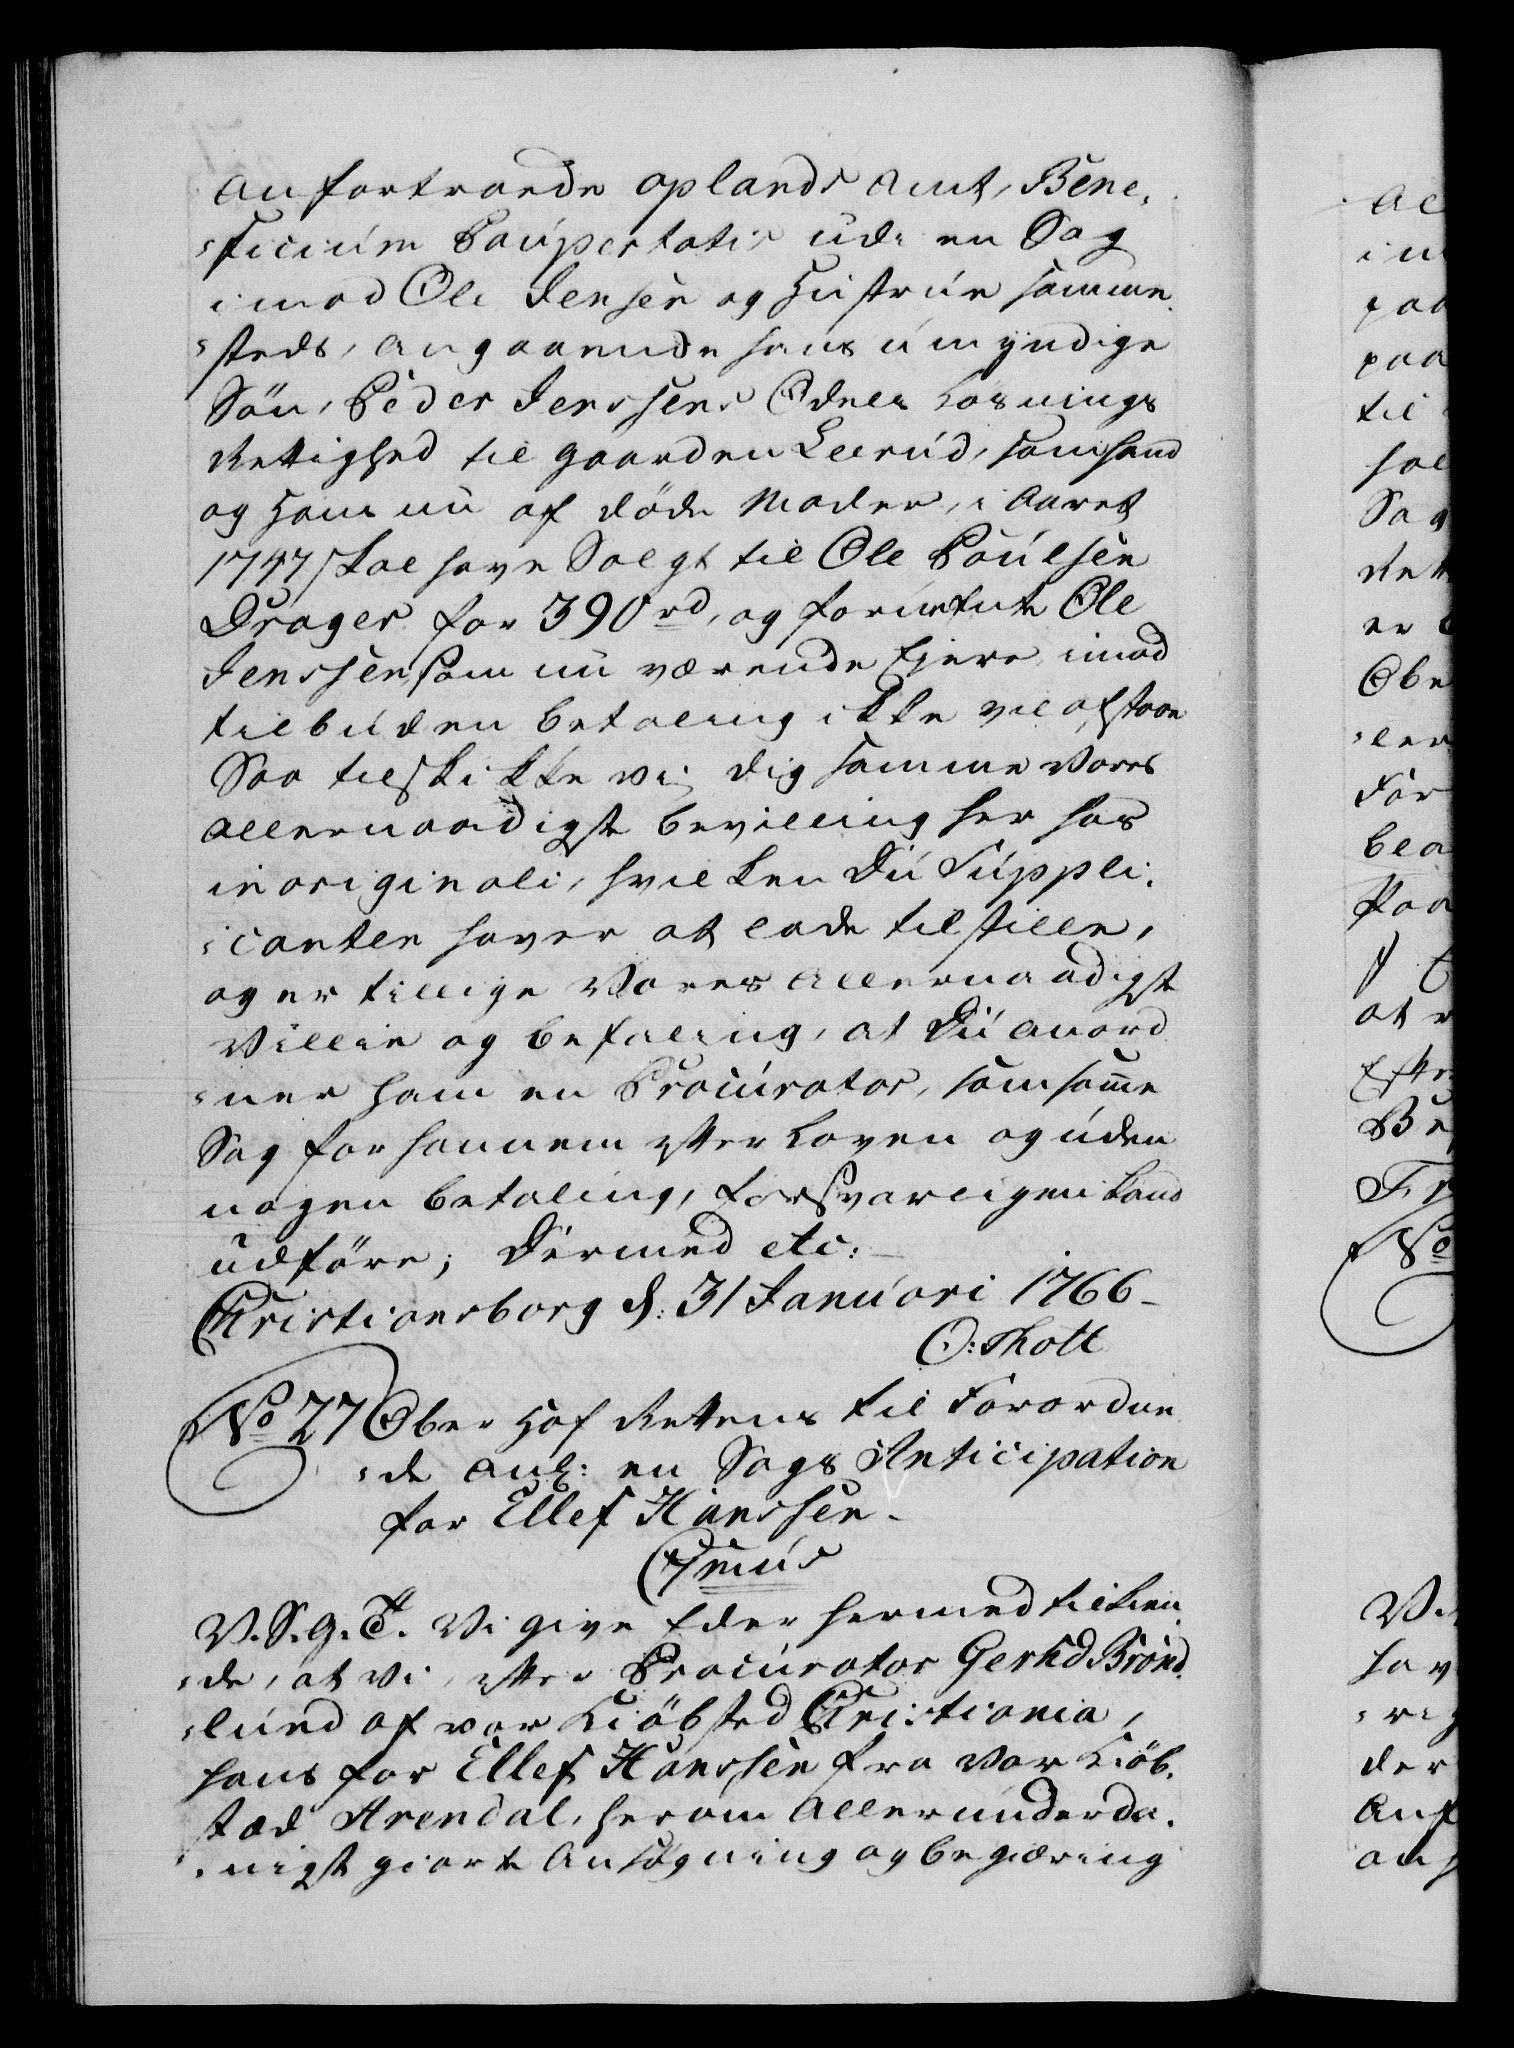 anfortroede oplands Amt, Bene,
ficium Paupertatis udi en Sag
imod Ole Jensen og Hustrue samme
steds, angaaende hans umyndige
Sön, Peder Jenssens Odels Løsnings
Rettighed til gaarden Leerud, som hand
og Hans nu af döde Moder, i Aaret
1747 skal have Solgt til Ole Poulsen
Drager for 390 rd, og formente Ole
Jenssen som nu værende Ejere imod
tilbuden betaling ikke vil afstaae
Saa tilskikke vi dig samme Vores
allernaadigste bevilling her hos
in originali, hvilken Du Suppli,
canten haver at lade tilstille,
og er tillige Vores allernaadigste
Villie og befaling, at Du anord
ner ham en Procurator, som samme
Sag for hannem efter Loven og uden
nogen betaling, forsvarligen kand
udföre; Dermed etc:
Christiansborg d: 31 Januari 1766
O: Thott
No 27 Ober Hof Rettens tilforordne
de anl: en Sags Anticipation
for Ellef Hanssen.
C 7mus
V. S. G. T. Vi give Eder hermed tilkien
de, at Vi, efter Procurator Gerhd Brønd
lund af vor Kiöbsted Christiania,
hans for Ellef Hanssen fra Vor Kiöb,
stæd Arendal, herom Allerunderda,
nigst giorte Ansøgning og begiæring